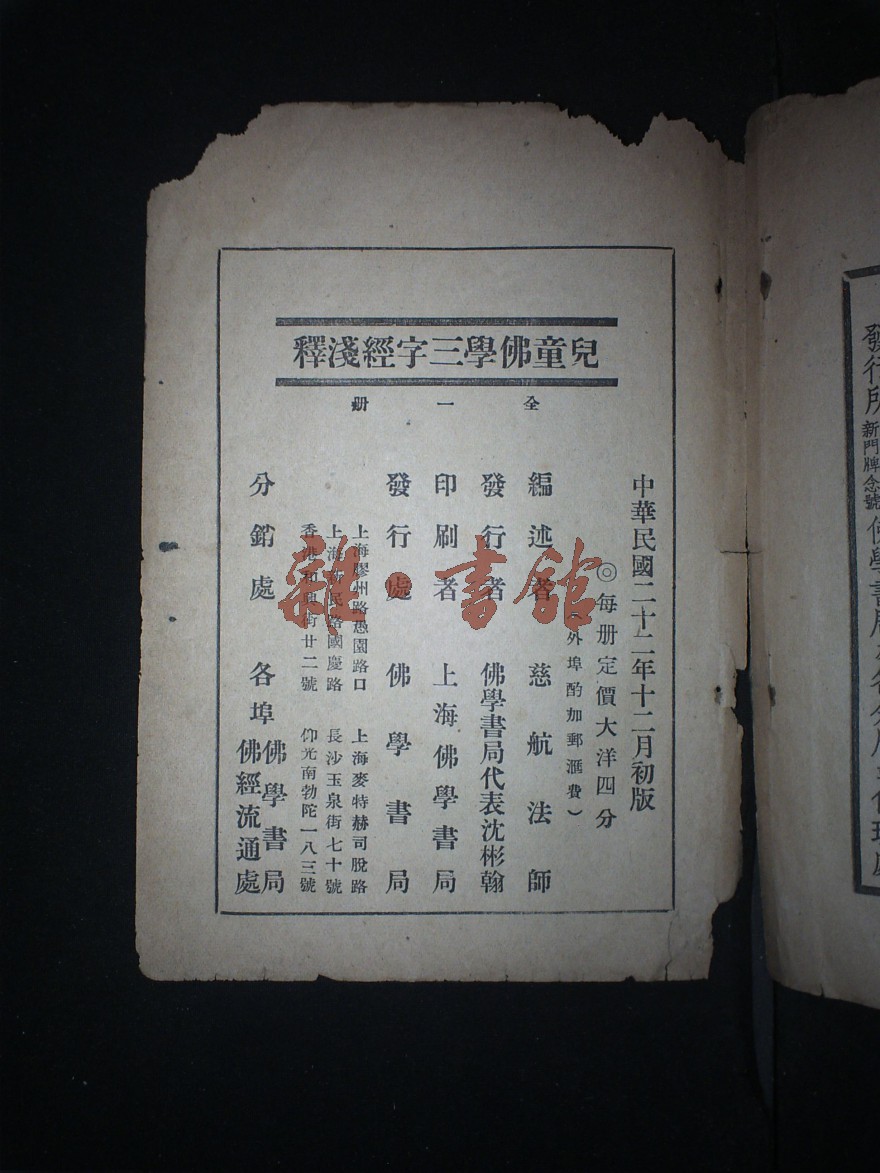 兒童佛學三字經淺釋
全一册
中華民國二十二年十二月初版
◎每册定價大洋四分
（外埠酌加郵滙費）
編述者 慈航法師
發行者 佛學書局代表沈彬翰
印刷者 上海佛學書局
發行處 佛學書局
上海膠州路愚園路口 上海麥特赫司脫路
上海新民路國慶路 長沙玉泉街七十號
香港和興街廿二號 仰光南勃陀一八三號
分銷處 各埠佛學書局
佛經流通處
發行所 新門牌念號 佛學書局
雜·書館